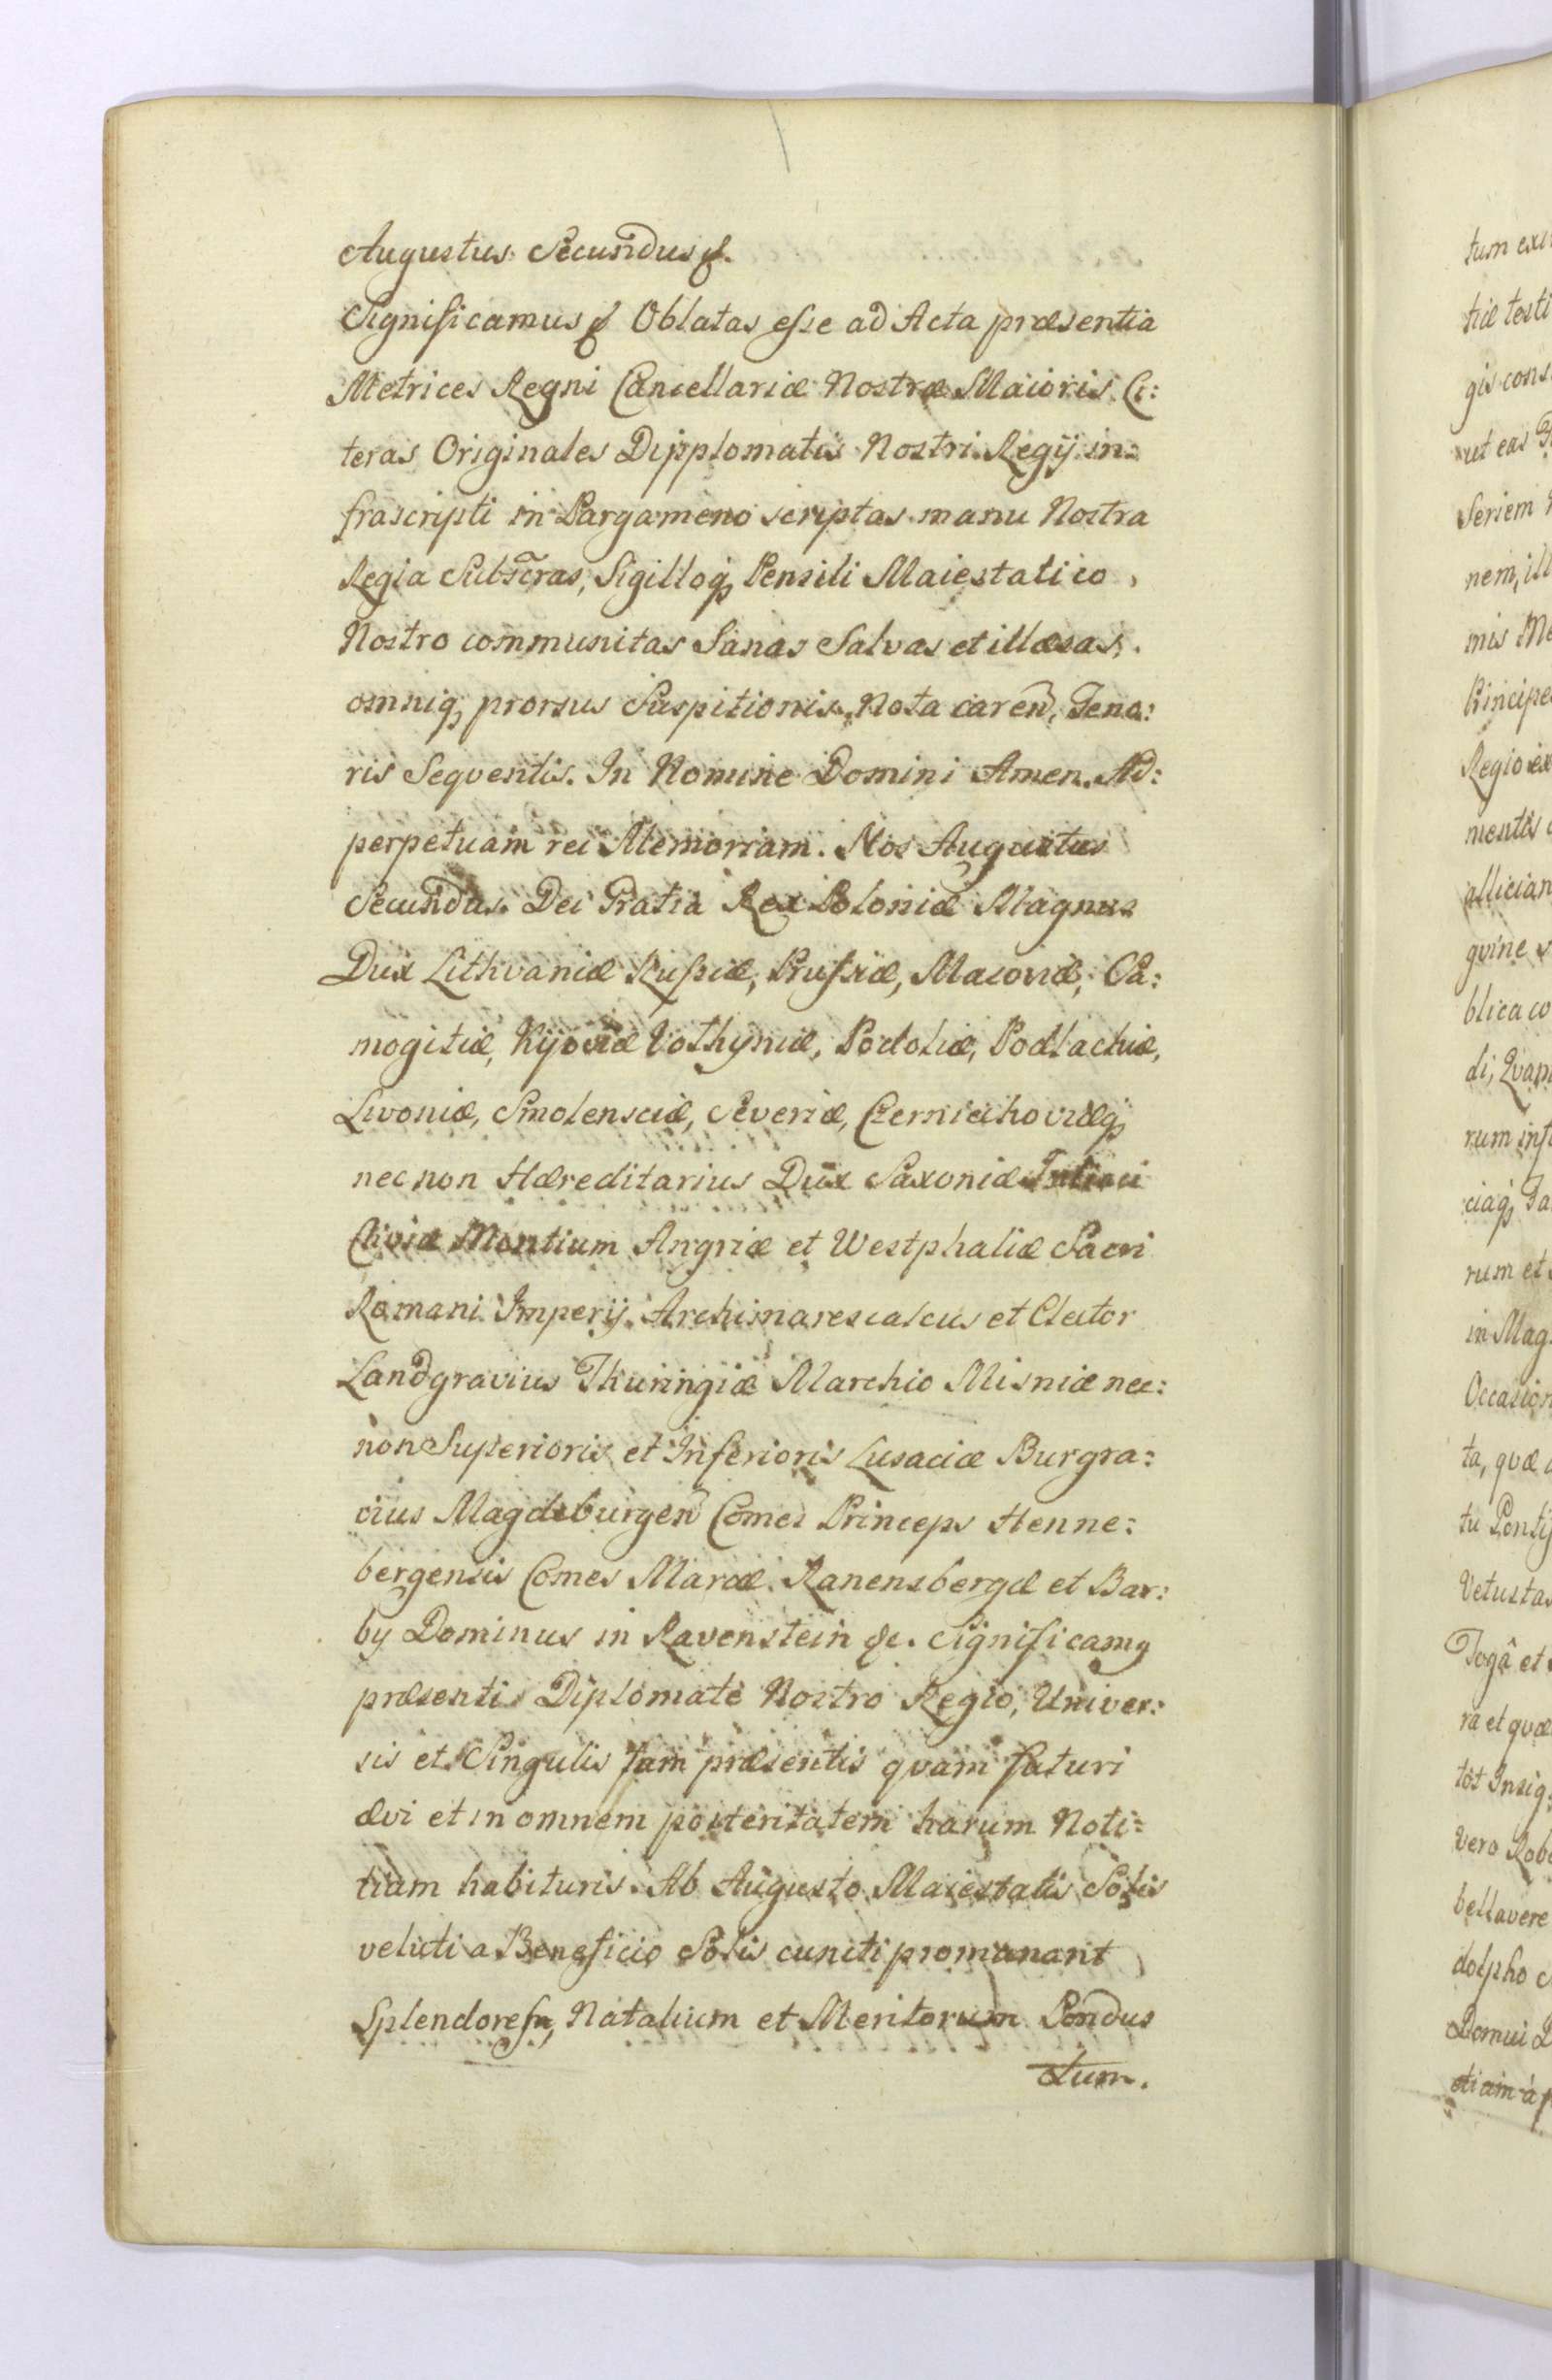 Augustus Secundus &.
Significamus & Oblatas esse ad Acta præsentia
Metrices Regni Cancellariæ Nostræ Maioris Li:
teras Originales Dipplomatis Nostri Regij in:
frascripti in Pargameno scriptas manu Nostra
Regia Subscras, Sigilloq, Pensili Maiestatico,
Nostro communitas Sanas Salvas et illæsas,
omniq, prorsus Suspitionis, Nota caren, Teno:
ris Seqventis. In Nomine Domini Amen. Ad:
perpetuam rei Memoriam. Nos Augustus
Secundus. Dei Gratia Rex Poloniæ Magnus
Dux Lithvaniæ Russiæ, Prussiæ, Masoviæ, Sa:
mogitiæ, Kijoviæ Volhyniæ, Podoliæ, Podlachiæ,
Livoniæ, Smolensciæ, Severiæ, Czerniechoviæq,
nec non Hæreditarius Dux Saxoniæ Juliaci
Cliviæ Montium Angriæ et Westphaliæ Sacri
Romani Imperij Archimarescalcus et Elector
Landgravius Thuringiæ Marchio Misniæ nec:
non Superioris et Inferioris Lusaciæ Burgra:
vius Magdeburgen Comes Princeps Henne:
bergensis Comes Marcæ Ranensbergæ et Bar:
by Dominus in Ravenstein &c. Significamg
præsenti Diplomate Nostro Regio, Univer:
sis et Singulis tam præsentis qvam futuri
ævi et in omnem posteritatem harum Noti=
tiam habituris. Ab Augusto Maiestatis Solis
veluti a Beneficio Solis cuncti promanant
Splendores, Natalium et Meritorum Pondus
tum.
tum ex
tiæ testi
gis cons
ut eas
Seriem
nem, ill
mis Me
Principe
Regio ex
mentis
allician
gvine
blica co
di, Qvap
rum inf
ciaq, Ta
rum et
in Mag
Occasion
ta, qvæ
tu Ponti
Vetustas
Togâ et
ra et qvæ
tot Insig:
vero Rob
bellavere
dolpho
Domui
etiam a p